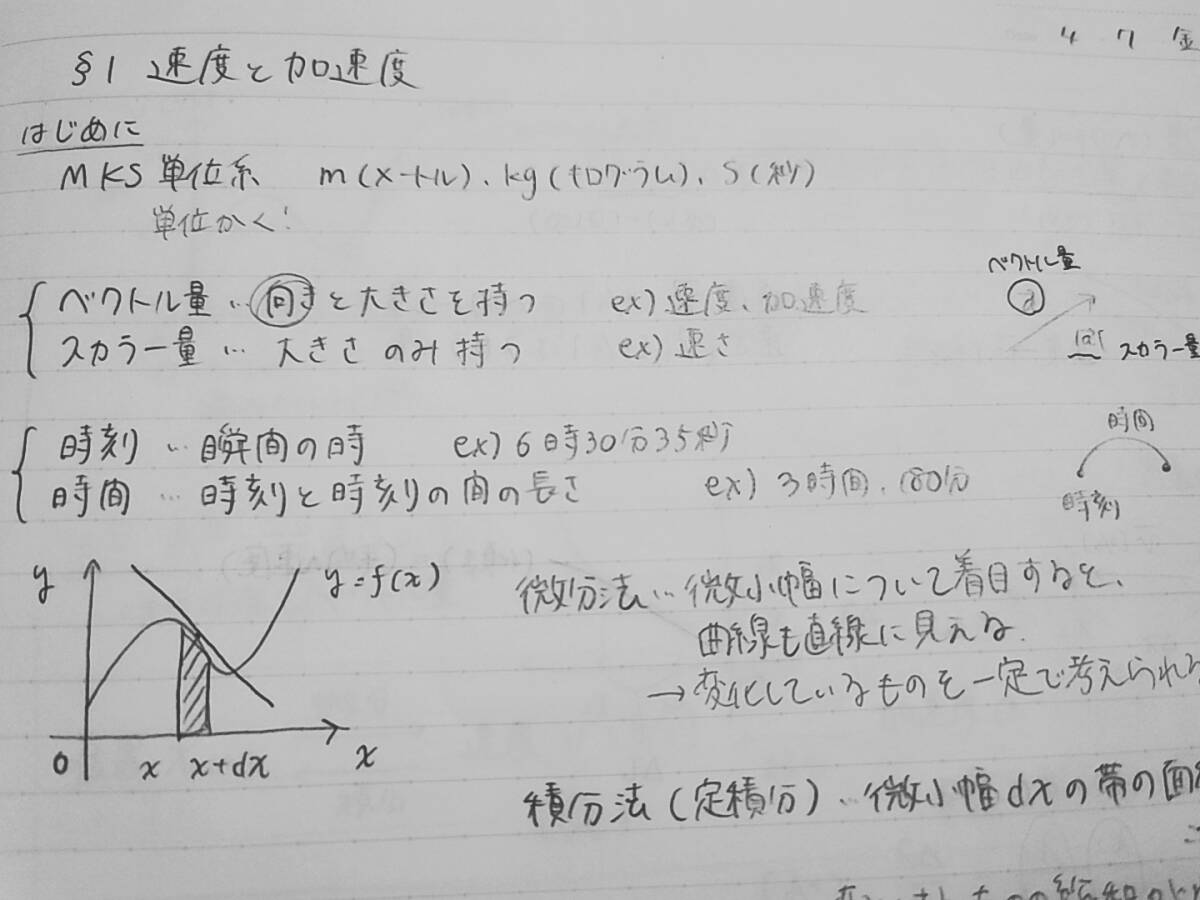 4 7 金
§1 速度と加速度
はじめに
MKS単位系 m(メートル)、kg(キログラム)、S(秒)
単位かく!
ベクトル量…向きと大きさを持つ ex)速度、加速度
スカラー量…大きさのみ持つ ex)速さ
ベクトル量
スカラー量
時刻…瞬間の時 ex)6時30分35秒
時間…時刻と時刻の間の長さ ex)3時間、180分
時間
時刻
y
y=f(x)
0 x x+dx x
微分法…微小幅について着目すると、
曲線も直線に見える.
→変化しているものを一定で考えられる
積分法(定積分)…微小幅dxの帯の面